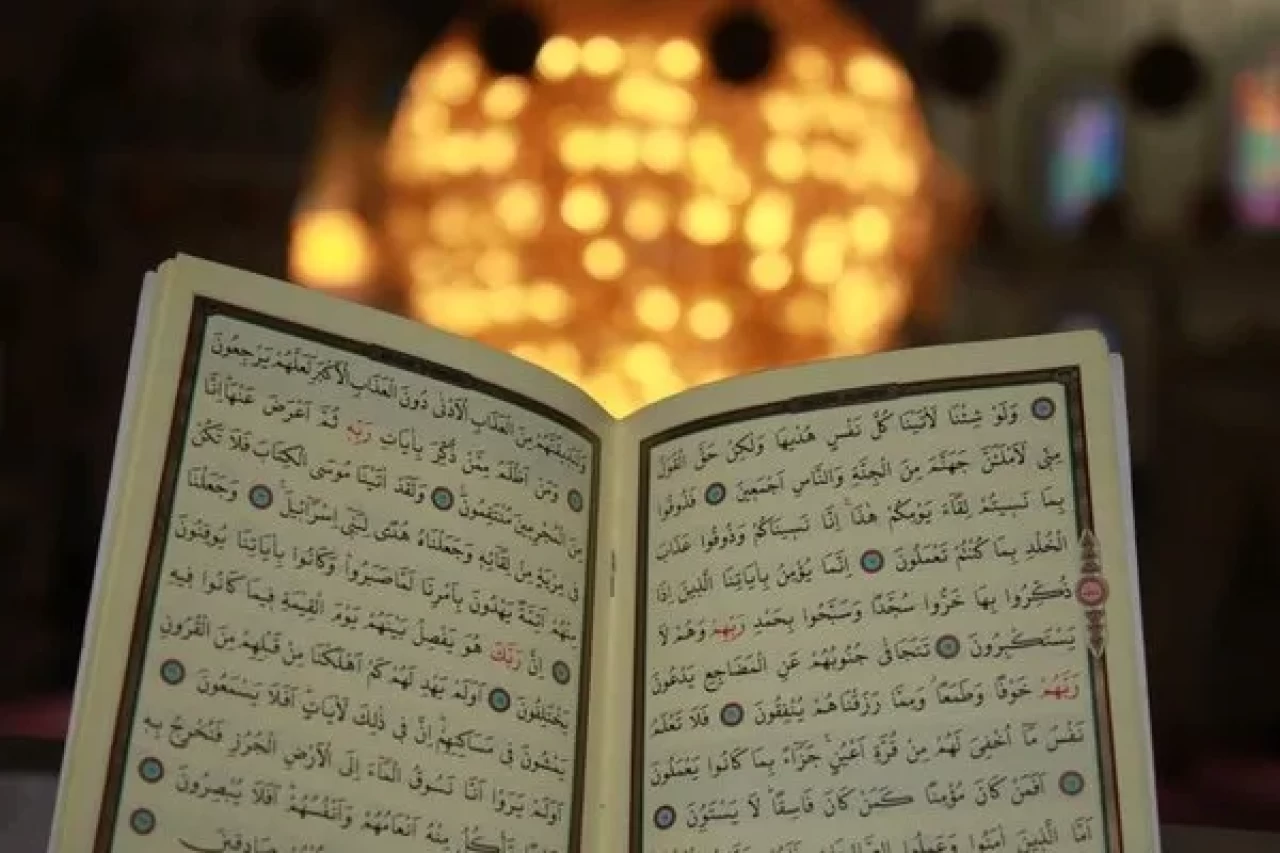 وَلَوْ شِئْنَا لَاٰتَيْنَا كُلَّ نَفْسٍ هُدٰيهَا وَلٰكِنْ حَقَّ الْقَوْلُ
مِنّ۪ي لَاَمْلَـَٔنَّ جَهَنَّمَ مِنَ الْجِنَّةِ وَالنَّاسِ اَجْمَع۪ينَ فَذُوقُوا
بِمَا نَس۪يتُمْ لِقَٓاءَ يَوْمِكُمْ هٰذَاۚ اِنَّا نَس۪ينَاكُمْ وَذُوقُوا عَذَابَ
الْخُلْدِ بِمَا كُنْتُمْ تَعْمَلُونَ اِنَّمَا يُؤْمِنُ بِاٰيَاتِنَا الَّذ۪ينَ اِذَا
ذُكِّرُوا بِهَا خَرُّوا سُجَّدًا وَسَبَّحُوا بِحَمْدِ رَبِّهِمْ وَهُمْ لَا
يَسْتَكْبِرُونَ تَتَجَافٰى جُنُوبُهُمْ عَنِ الْمَضَاجِعِ يَدْعُونَ
رَبَّهُمْ خَوْفًا وَطَمَعًاۘ وَمِمَّا رَزَقْنَاهُمْ يُنْفِقُونَ فَلَا تَعْلَمُ
نَفْسٌ مَٓا اُخْفِيَ لَهُمْ مِنْ قُرَّةِ اَعْيُنٍۚ جَزَٓاءً بِمَا كَانُوا يَعْمَلُونَ
اَفَمَنْ كَانَ مُؤْمِنًا كَمَنْ كَانَ فَاسِقًاۜ لَا يَسْتَوُ۫نَ
اَمَّا الَّذ۪ينَ اٰمَنُوا وَعَمِلُوا الصَّالِحَاتِ
وَلَنُذ۪يقَنَّهُمْ مِنَ الْعَذَابِ الْاَدْنٰى دُونَ الْعَذَابِ الْاَكْبَرِ لَعَلَّهُمْ يَرْجِعُونَ
وَمَنْ اَظْلَمُ مِمَّنْ ذُكِّرَ بِاٰيَاتِ رَبِّه۪ ثُمَّ اَعْرَضَ عَنْهَاۜ اِنَّا
مِنَ الْمُجْرِم۪ينَ مُنْتَقِمُونَ۟ وَلَقَدْ اٰتَيْنَا مُوسَى الْكِتَابَ فَلَا تَكُنْ
ف۪ي مِرْيَةٍ مِنْ لِقَٓائِه۪ وَجَعَلْنَاهُ هُدًى لِبَن۪ٓي اِسْرَٓاء۪يلَۚ وَجَعَلْنَا
مِنْهُمْ اَئِمَّةً يَهْدُونَ بِاَمْرِنَا لَمَّا صَبَرُواۜ وَكَانُوا بِاٰيَاتِنَا يُوقِنُونَ
اِنَّ رَبَّكَ هُوَ يَفْصِلُ بَيْنَهُمْ يَوْمَ الْقِيٰمَةِ ف۪يمَا كَانُوا ف۪يهِ
يَخْتَلِفُونَ اَوَلَمْ يَهْدِ لَهُمْ كَمْ اَهْلَكْنَا مِنْ قَبْلِهِمْ مِنَ الْقُرُونِ
يَمْشُونَ ف۪ي مَسَاكِنِهِمْۜ اِنَّ ف۪ي ذٰلِكَ لَاٰيَاتٍۜ اَفَلَا يَسْمَعُونَ
اَوَلَمْ يَرَوْا اَنَّا نَسُوقُ الْمَٓاءَ اِلَى الْاَرْضِ الْجُرُزِ فَنُخْرِجُ بِه۪
تَأْكُلُ مِنْهُ اَنْعَامُهُمْ وَاَنْفُسُهُمْۜ اَفَلَا يُبْصِرُونَ
صَادِق۪ينَ